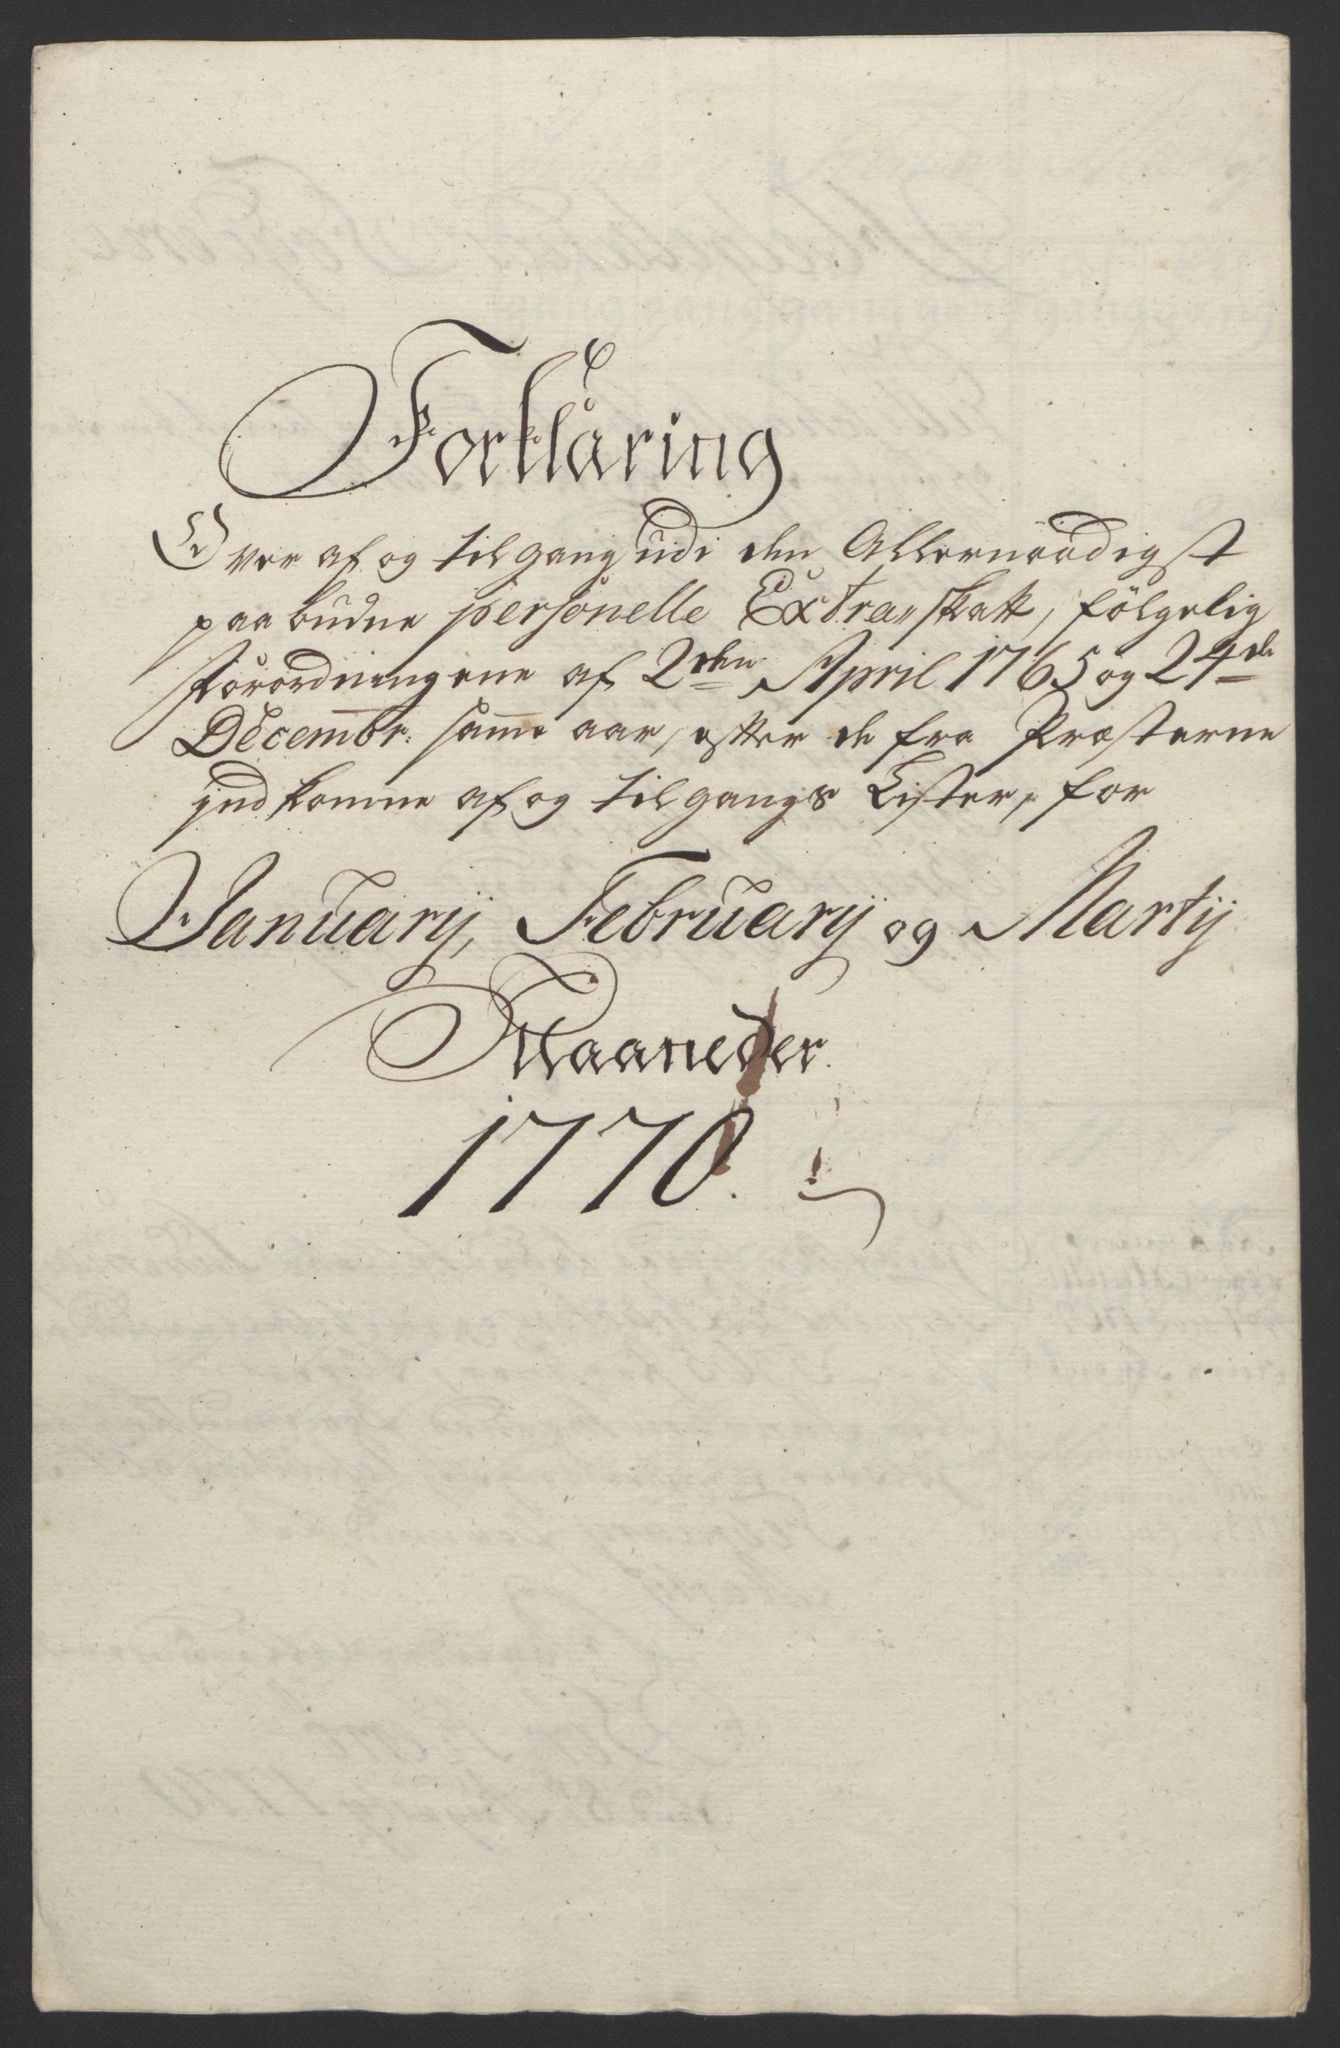 Forklaring
Over af og tilgang udi den Allernaadigst
paabudne personelle Extra skatt, følgelig
Forordningene af 2den April 1765 og 24de
Decembr: samme aar, efter de fra Præsterne
indkomne af og tilgangs Lister, for
Januarij, Februarij og Martij
Maaneder
1770.